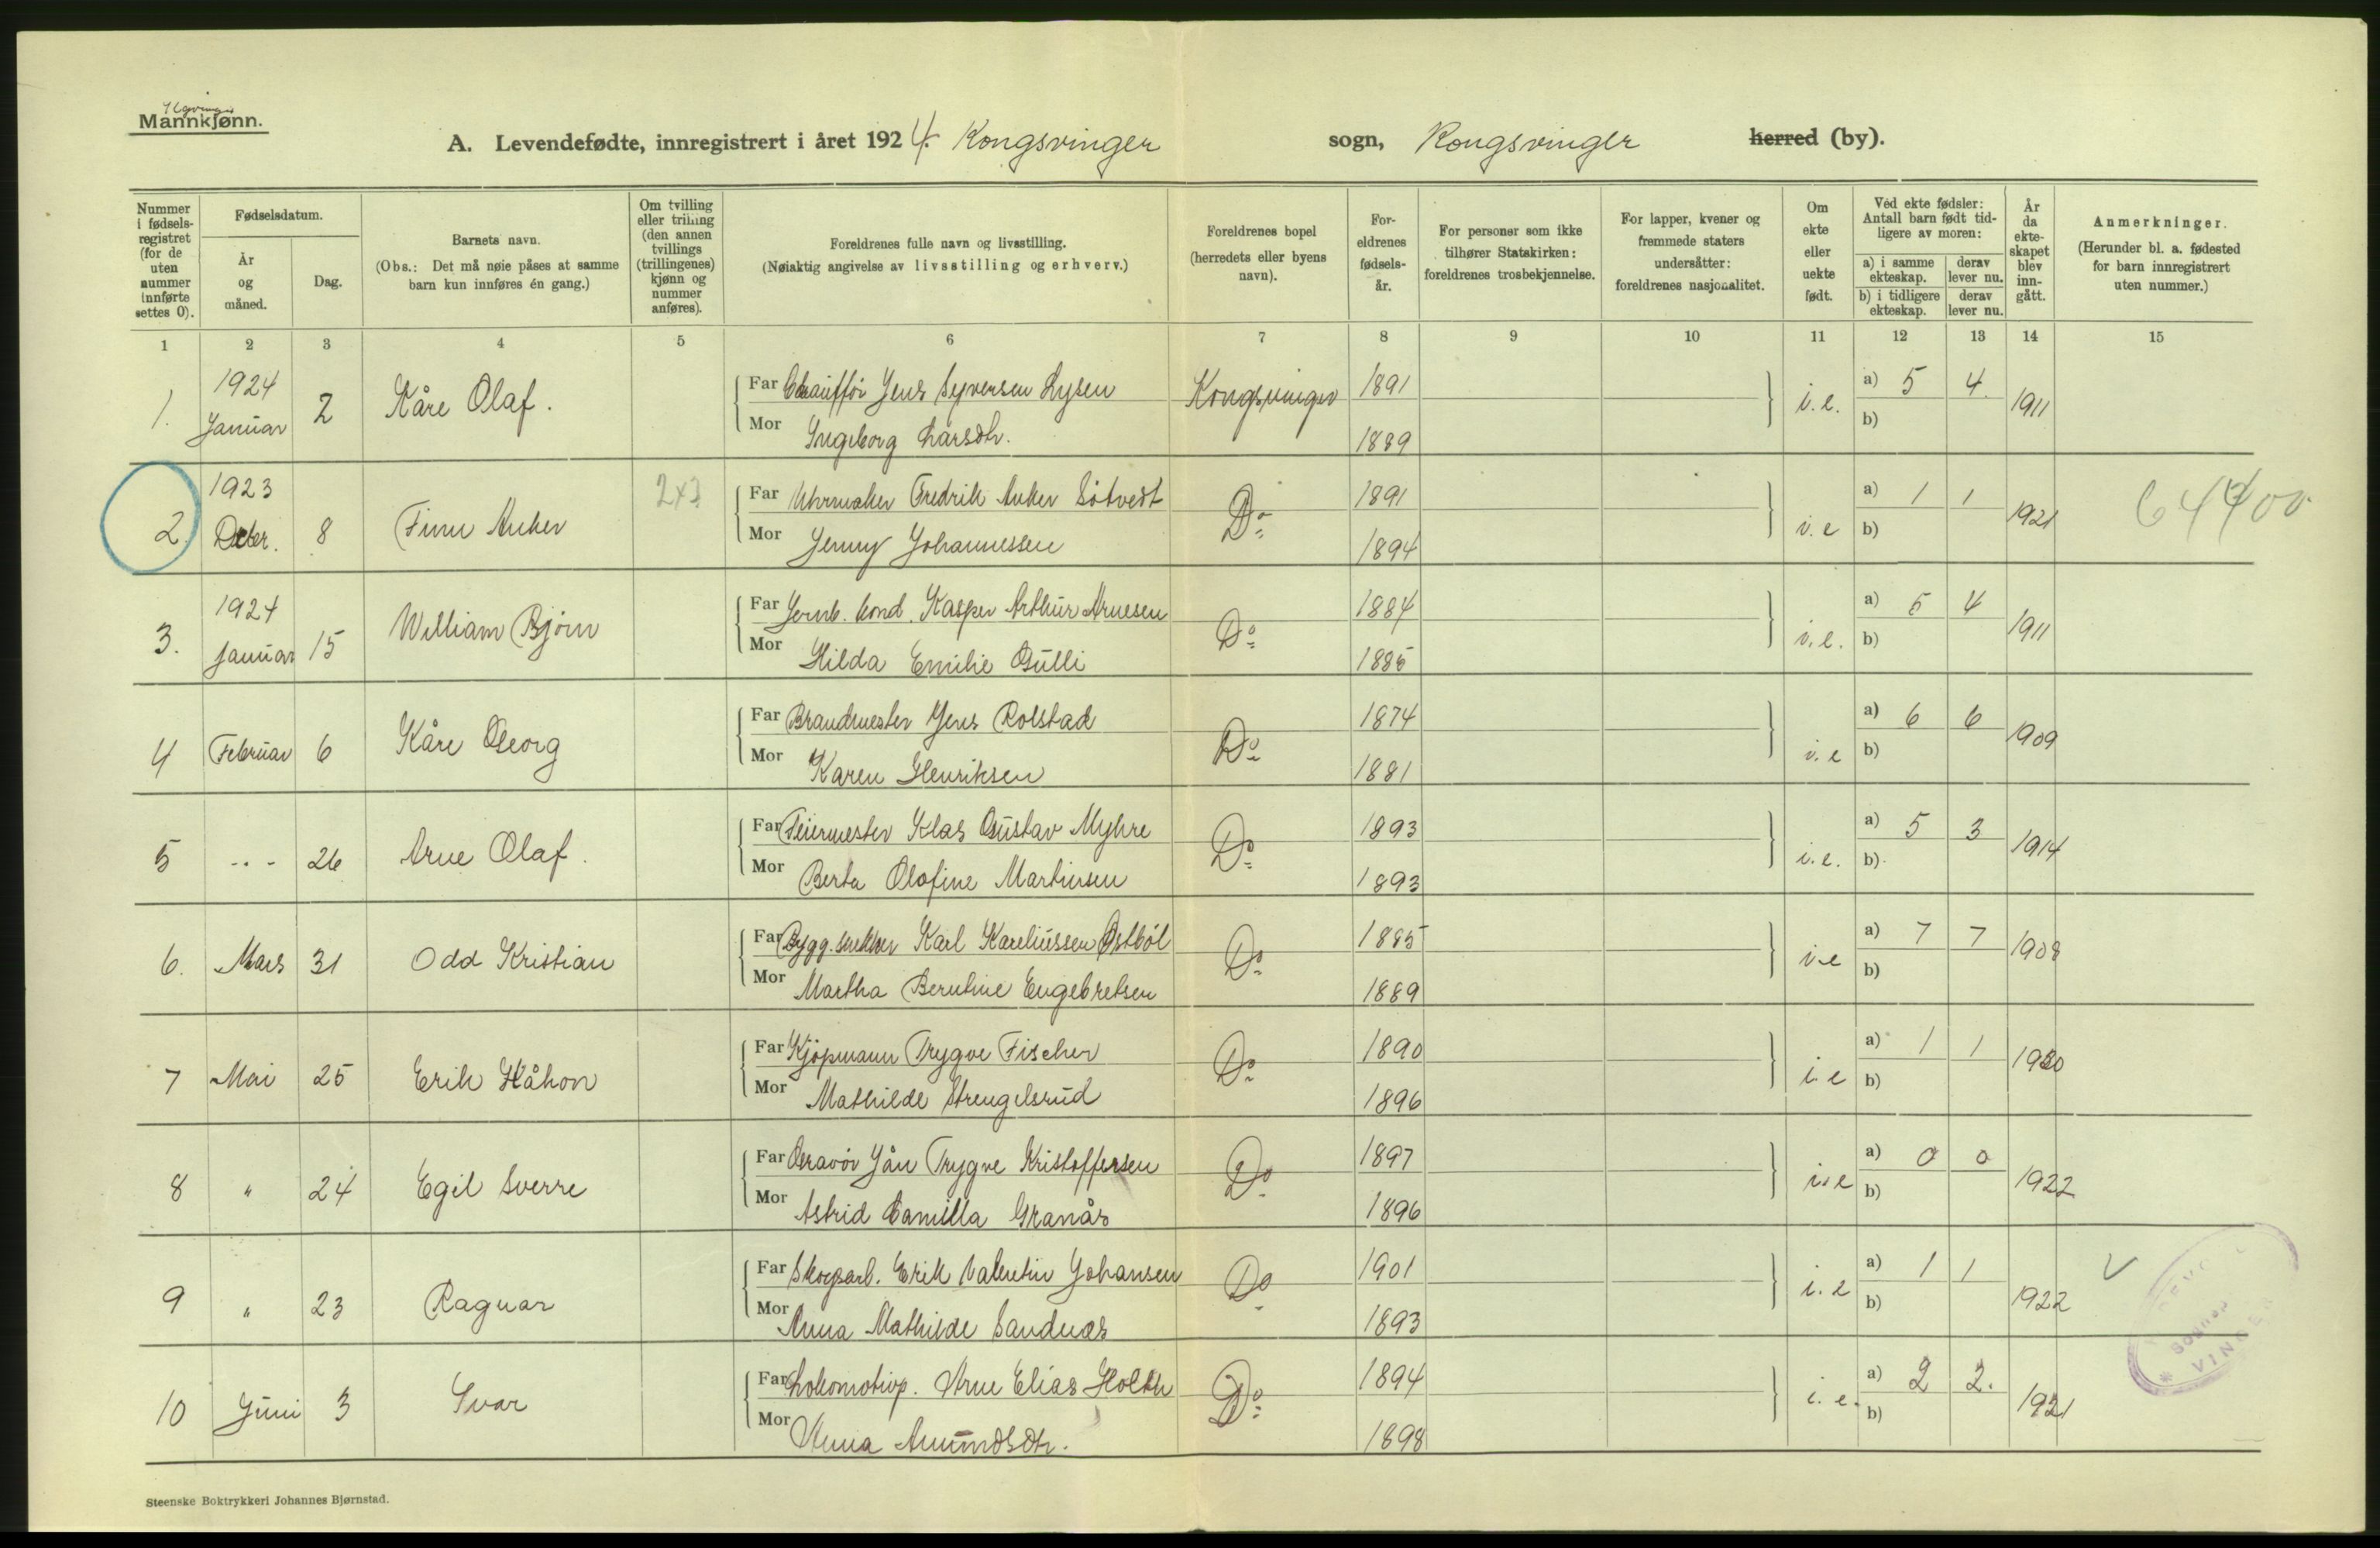 Mannkjønn.
A. Levendefødte, innregistrert i året 1924. Kongsvinger sogn, Kongsvinger herred (by).
Nummer i fødsels-registret (for de uten nummer innførte settes 0).
Fødselsdatum.
År og måned.
Dag.
Barnets navn.
(Obs.: Det må nøie påses at samme barn kun innføres én gang.)
Om tvilling eller trilling (den annen tvillings (trillingenes) kjønn og nummer anføres).
Foreldrenes fulle navn og livsstilling.
(Nøiaktig angivelse av livsstilling og erhverv.)
Foreldrenes bopel (herredets eller byens navn).
For-eldrenes fødsels-år.
For personer som ikke tilhører Statskirken: foreldrenes trosbekjennelse.
For lapper, kvener og fremmede staters undersåtter: foreldrenes nasjonalitet.
Om ekte eller uekte født.
Ved ekte fødsler: Antall barn født tid-ligere av moren:
a) i samme ekteskap. derav lever nu.
b) i tidligere ekteskap. derav lever nu.
År da ekte-skapet blev inn-gått.
Anmerkninger.
(Herunder bl. a. fødested for barn innregistrert uten nummer.)
1 2 3 4 5 6 7 8 9 10 11 12 13 14 15
1. 1924 Januar 2 Kåre Olaf. Far Chauffør Jens Syversen Lysen Kongsvinger 1891 i.e. a) 5 4. 1911
Mor Ingeborg Larsdtr. 1889 b)
2. 1923 Decbr. 8 Finn Anker Far Uhrmaker Fredrik Anker Søtvedt Do 1891 i.e a) 1 1 1921 64400
Mor Jenny Johannessen 1894 b)
3. 1924 Januar 15 William Bjørn Far Jernb. kond. Kasper Arthur Arnesen Do 1884 i.e. a) 5 4 1911
Mor Hilda Emilie Gulli 1885 b)
4 Februar 6 Kåre Georg Far Brandmester Jens Rolstad Do 1874 i.e a) 6 6 1909
Mor Karen Henriksen 1881 b)
5 -"- 26 Arne Olaf. Far Feiermester Klas Gustav Myhre Do 1893 i.e. a) 5 3 1914
Mor Berta Olofine Martinsen 1893 b)
6. Mars 31 Odd Kristian Far Bygg.snekker Karl Kareliussen Østbøl Do 1885 i.e a) 7 7 1908
Mor Martha Berntine Engebretsen 1889 b)
7 Mai 25 Erik Håkon Far Kjøpmann Trygve Fischer Do 1890 i.e a) 1 1 1920
Mor Mathilde Strengelsrud 1896 b)
8 " 24 Egil Sverre Far Gravør Jån Trygve Kristoffersen Do 1897 i.e a) 0 0 1922
Mor Astrid Camilla Granås 1896 b)
9 " 23 Ragnar Far Skogsarb. Erik Valentin Johansen Do 1901 i.e a) 1 1 1922
Mor Anna Mathilde Sandnæs 1893 b)
10 Juni 3 Ivar Far Lokomotivp. Arne Elias Holth Do 1894 i.e. a) 2 2. 1921
Mor Anna Amundsdtr. 1898 b)
Steenske Boktrykkeri Johannes Bjørnstad.